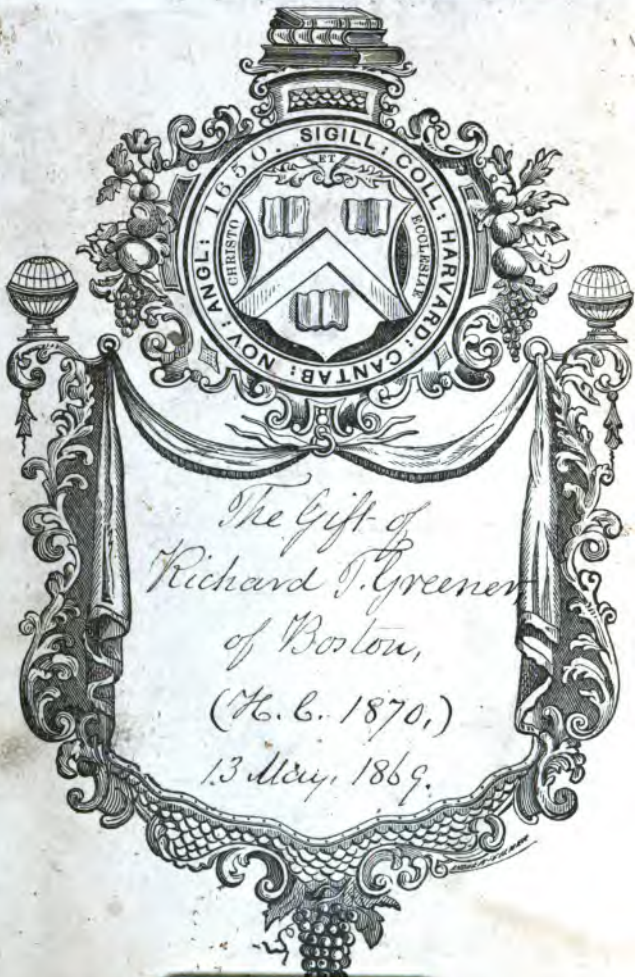 SIGILL: COLL: HARVARD: CANTAB: NOV: ANGL: 1650.
ET
CHRISTO
ECCLESIAE
The Gift of
Richard T. Greener,
of Boston,
(H. C. 1870,)
13 May, 1869.